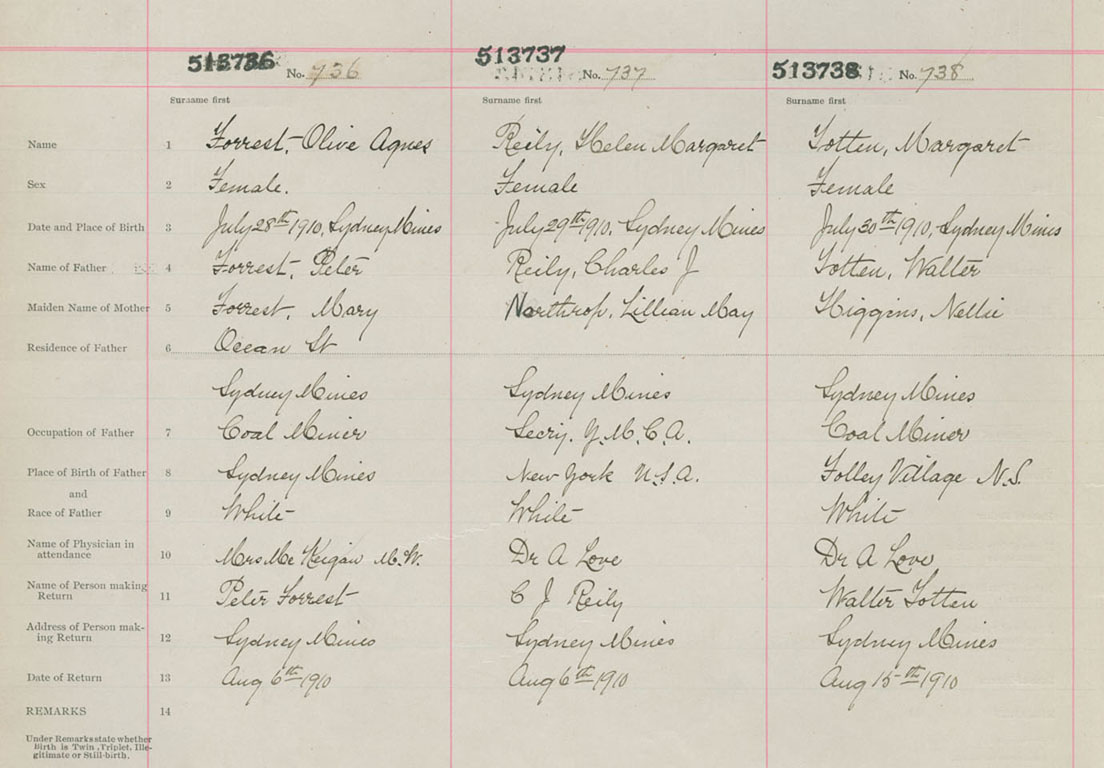 513736 No. 736 513737 No. 737 513738 No. 738
Surname first Surname first Surname first
Name 1 Forrest, Olive Agnes Reily, Helen Margaret Totten, Margaret
Sex 2 Female. Female Female
Date and Place of Birth 3 July 28th 1910, Sydney Mines July 29th 1910, Sydney Mines July 30th 1910, Sydney Mines
Name of Father 4 Forrest, Peter Reily, Charles J Totten, Walter
Maiden Name of Mother 5 Forrest, Mary Northrop, Lillian May Higgins, Nellie
Residence of Father 6 Ocean St
Sydney Mines Sydney Mines Sydney Mines
Occupation of Father 7 Coal Miner Secry. Y.M.C.A. Coal Miner
Place of Birth of Father 8 Sydney Mines New York U.S.A. Folley Village N.S.
and
Race of Father 9 White White White
Name of Physician in
attendance 10 Mrs Mc Keigan M.W. Dr A Love Dr A Love
Name of Person making
Return 11 Peter Forrest C J Reily Walter Totten
Address of Person mak-
ing Return 12 Sydney Mines Sydney Mines Sydney Mines
Date of Return 13 Aug 6th 1910 Aug 6th 1910 Aug 15th 1910
REMARKS 14
Under Remarks state whether
Birth is Twin, Triplet, Ille-
gitimate or Still-birth.